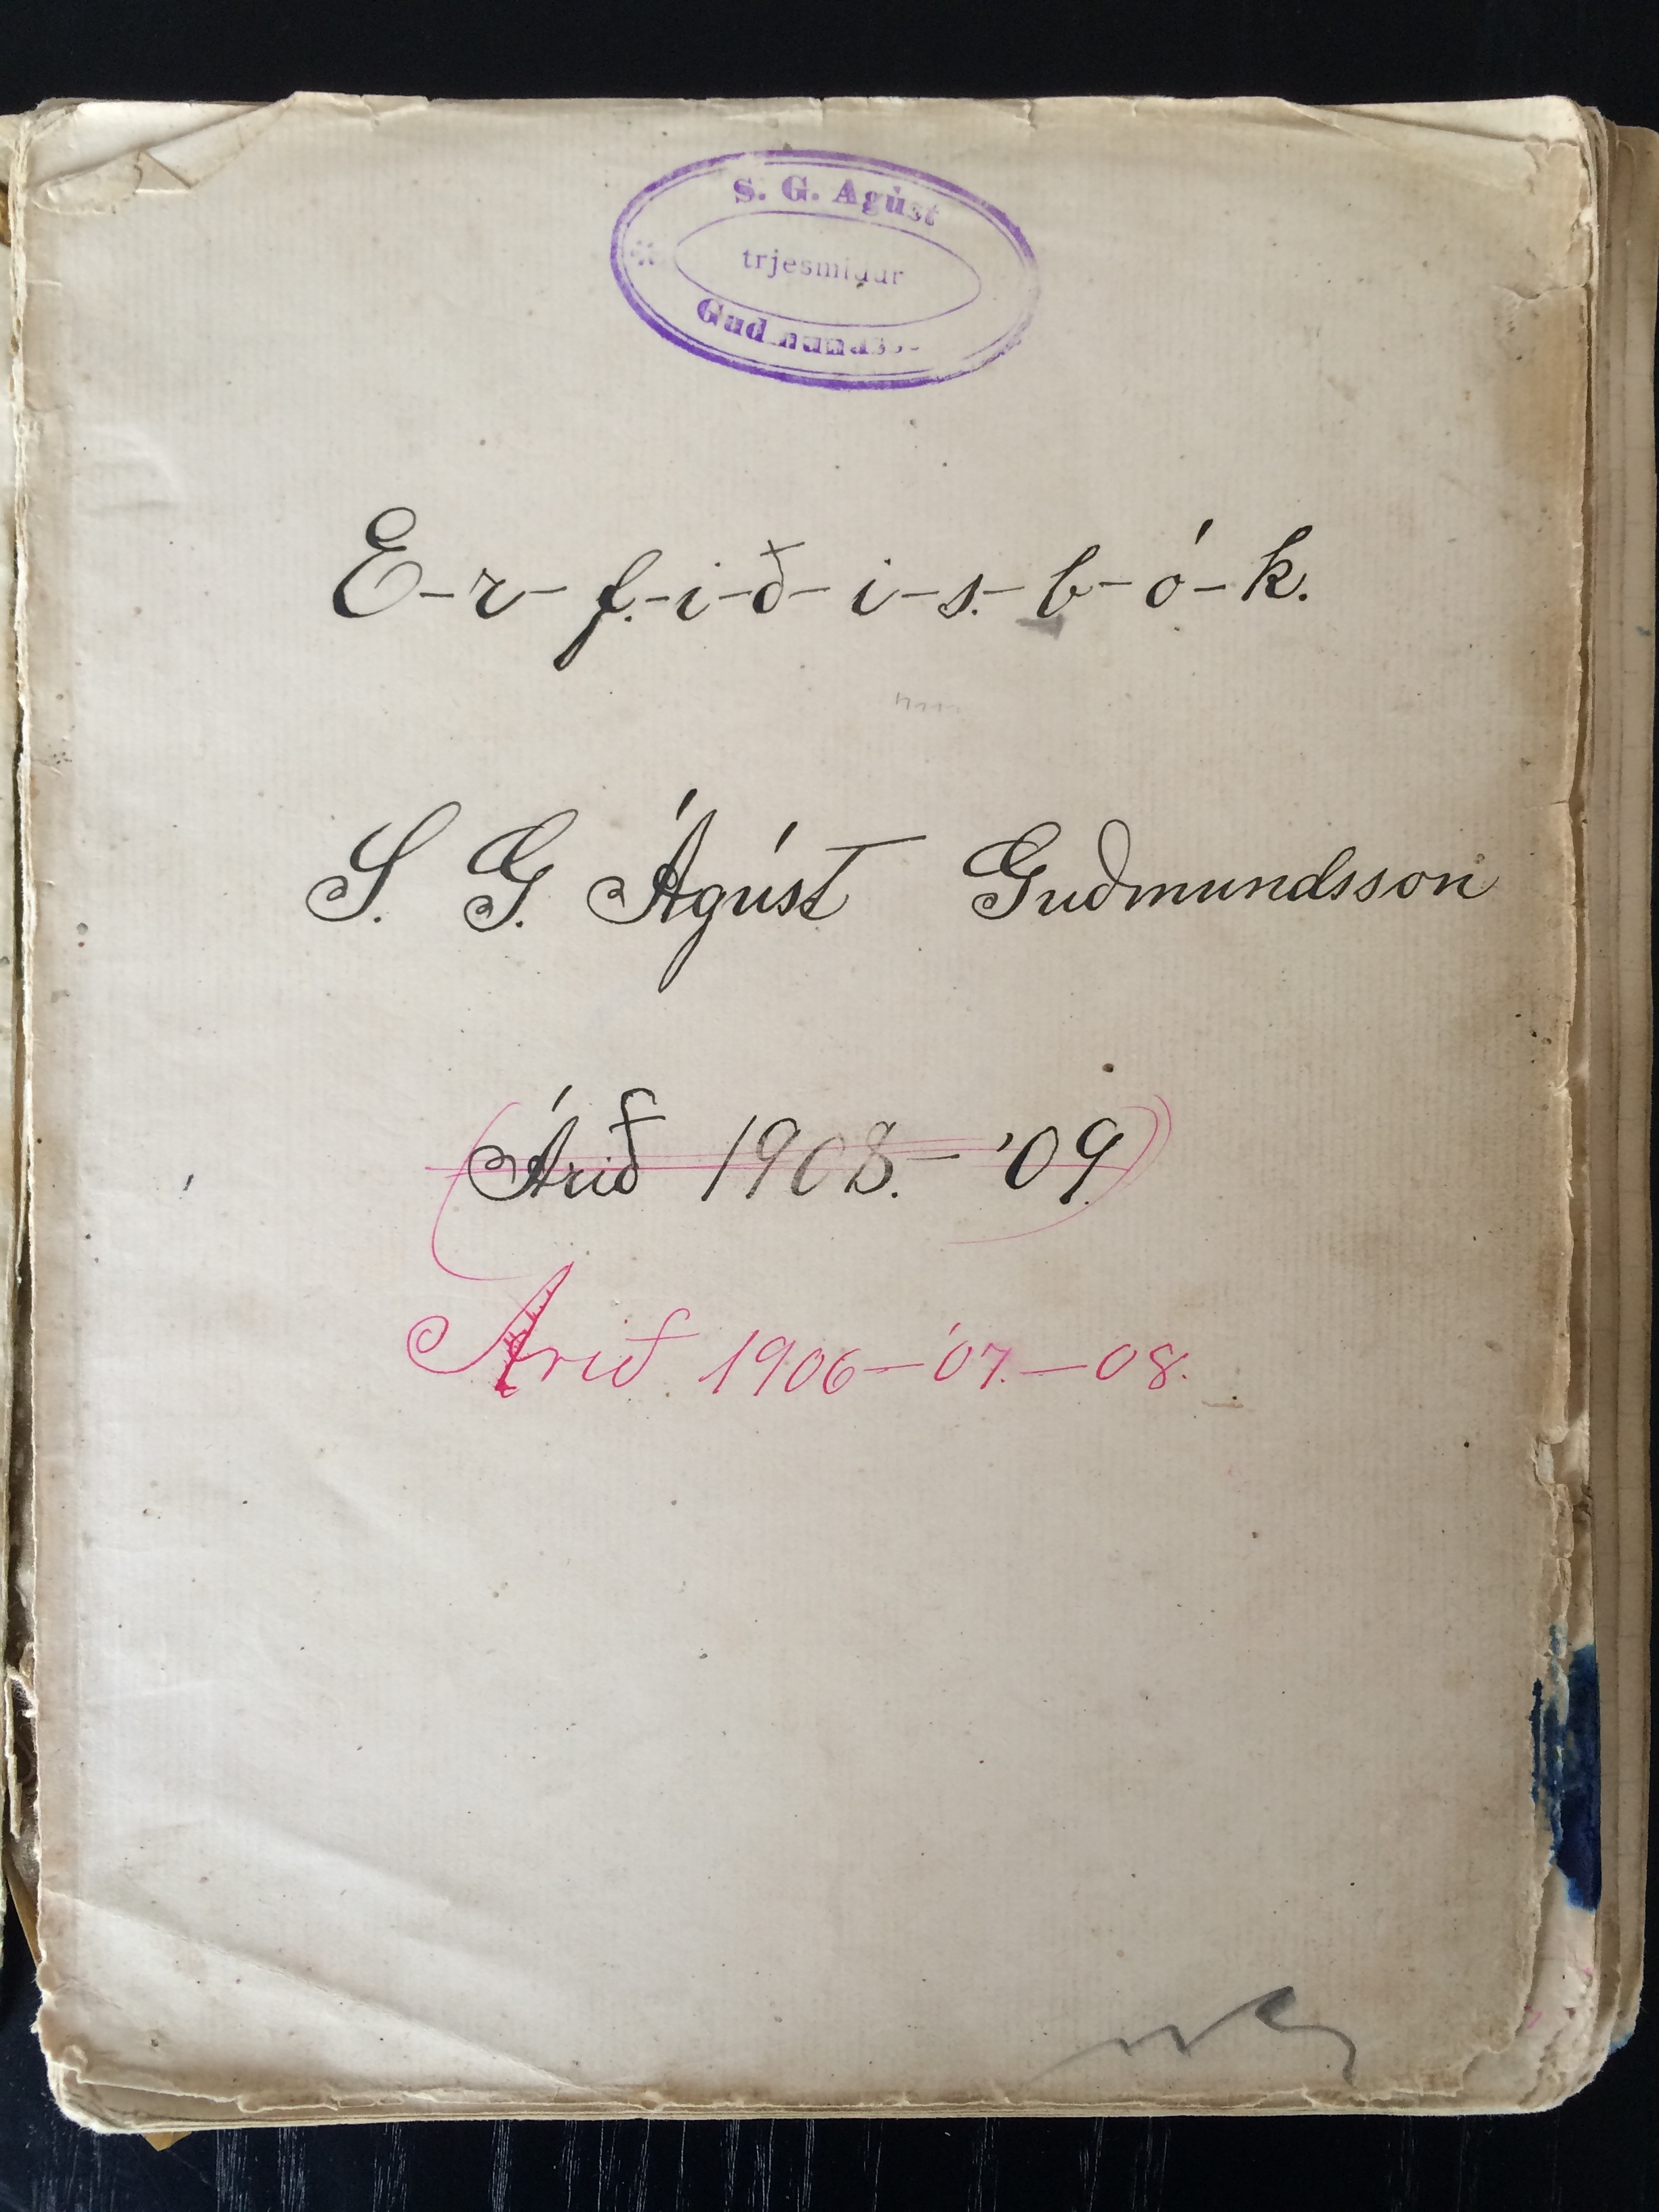 S. G. Ágúst
trjesmiður
Guðmundsson
E-r-f.-i-ð-i-s.-b-ó-k.
S. G. Ágúst Guðmundsson
(Árið 1908.-'09.)
Arið 1906-'07.-08.